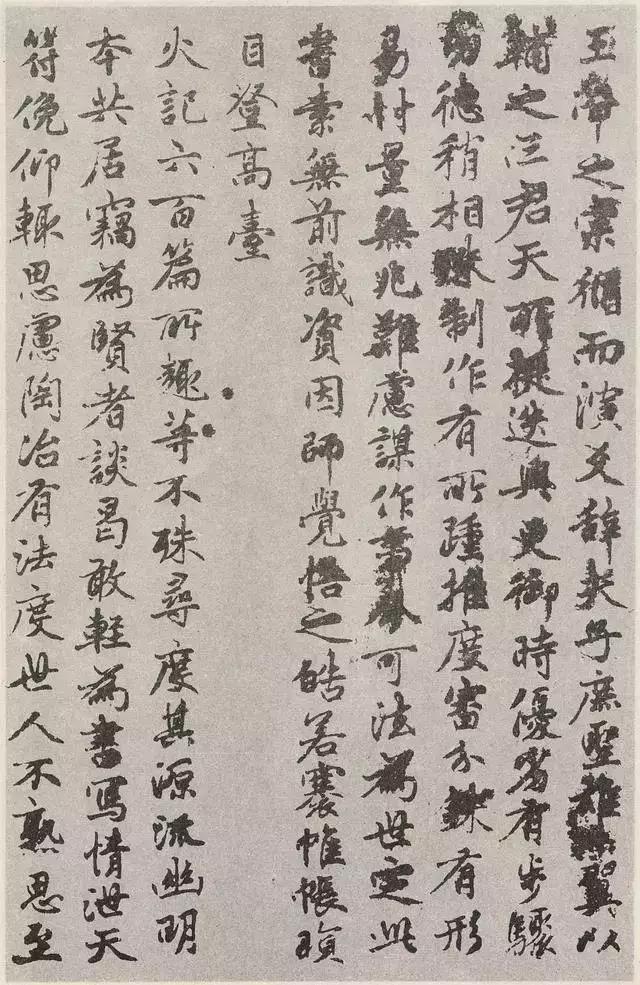 王帝之宗循而演爻辭夫子庶聖雄翼以
輔之三君天所挺迭興更御時優劣有步驟
功德稍相殊制作有所踵推度審分銖有形
易忖量無兆難慮謀作事令可法為世定此
書素無前識資因師覺悟之皓若褰帷帳瞋
目登高臺
火記六百篇所趣等不殊尋度其源流幽明
本共居竊為賢者談曷敢輕為書寫情泄天
符俛仰輒思慮陶冶有法度世人不熟思至